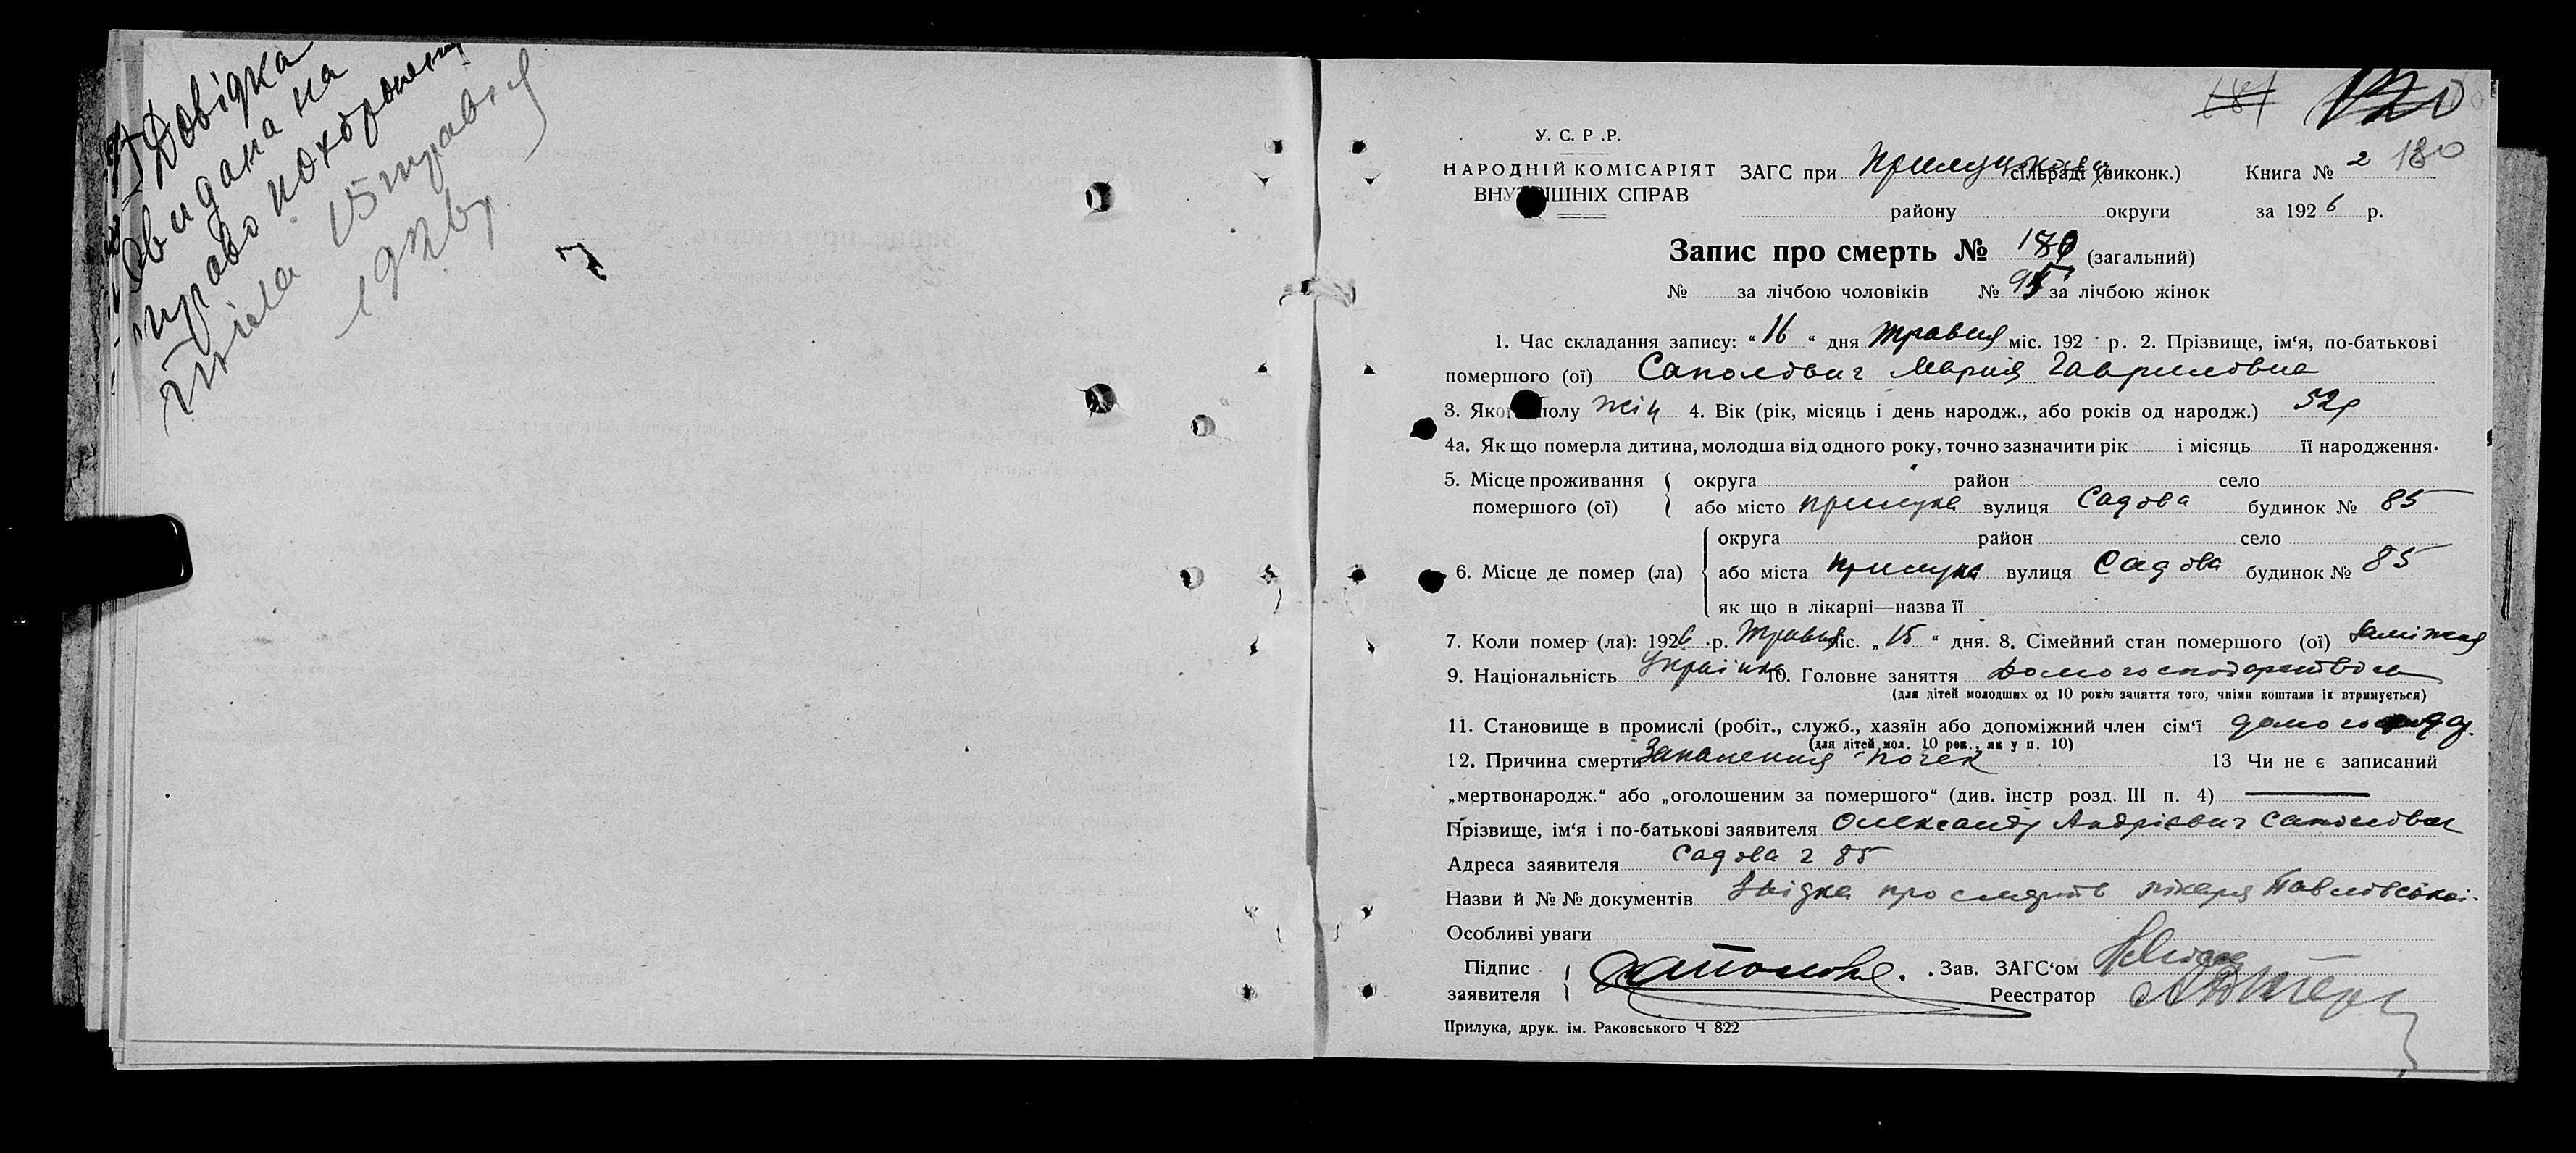 Довідка
видана на
право похорони
тіла 15 травня
1926 р.
У. С. Р. Р.
НАРОДНІЙ КОМІСАРІЯТ
ВНУТРІШНІХ СПРАВ
ЗАГС при Прилуцькому сільраді (виконк.)
Книга № 2 180
району округи за 1926 р.
Запис про смерть № 180 (загальний)
№ за лічбою чоловіків № 95 за лічбою жінок
1. Час складання запису: “ 16 “ дня Травня міс. 192 р. 2. Прізвище, ім‘я, по-батькові
помершого (ої) Саполович Мария Гавриловна
3. Якого полу жін 4. Вік (рік, місяць і день народж., або років од народж.) 52р
4а. Як що померла дитина, молодша від одного року, точно зазначити рік і місяць її народження.
5. Місце проживання округа район село
помершого (ої) або місто Прилука вулиця Садова будинок № 85
округа район село
6. Місце де помер (ла) або міста Прилука вулиця Садова будинок № 85
як що в лікарні—назва її
7. Коли помер (ла): 1926 р. Травня міс. „ 15 “ дня. 8. Сімейний стан помершого (ої) Заміжня
9. Національність Українка 10. Головне заняття Домогосподарством
(для дітей молодших од 10 років заняття того, чиїми коштами їх втримується)
11. Становище в промислі (робіт., служб., хазяїн або допоміжний член сім‘ї
(для дітей мол. 10 рок., як у п. 10)
12. Причина смерти Запалення почек 13 Чи не є записаний
„мертвонародж.“ або „оголошеним за помершого“ (див. інстр розд. III п. 4) —
Прізвище, ім‘я і по-батькові заявителя Олександр Андрієвич Саполович
Адреса заявителя Садова 2 85
Назви й №№ документів про смерть лікаря Павловської
Особливі уваги
Підпис
заявителя
Зав. ЗАГС‘ом
Реєстратор
Прилука, друк. ім. Раковського Ч 822